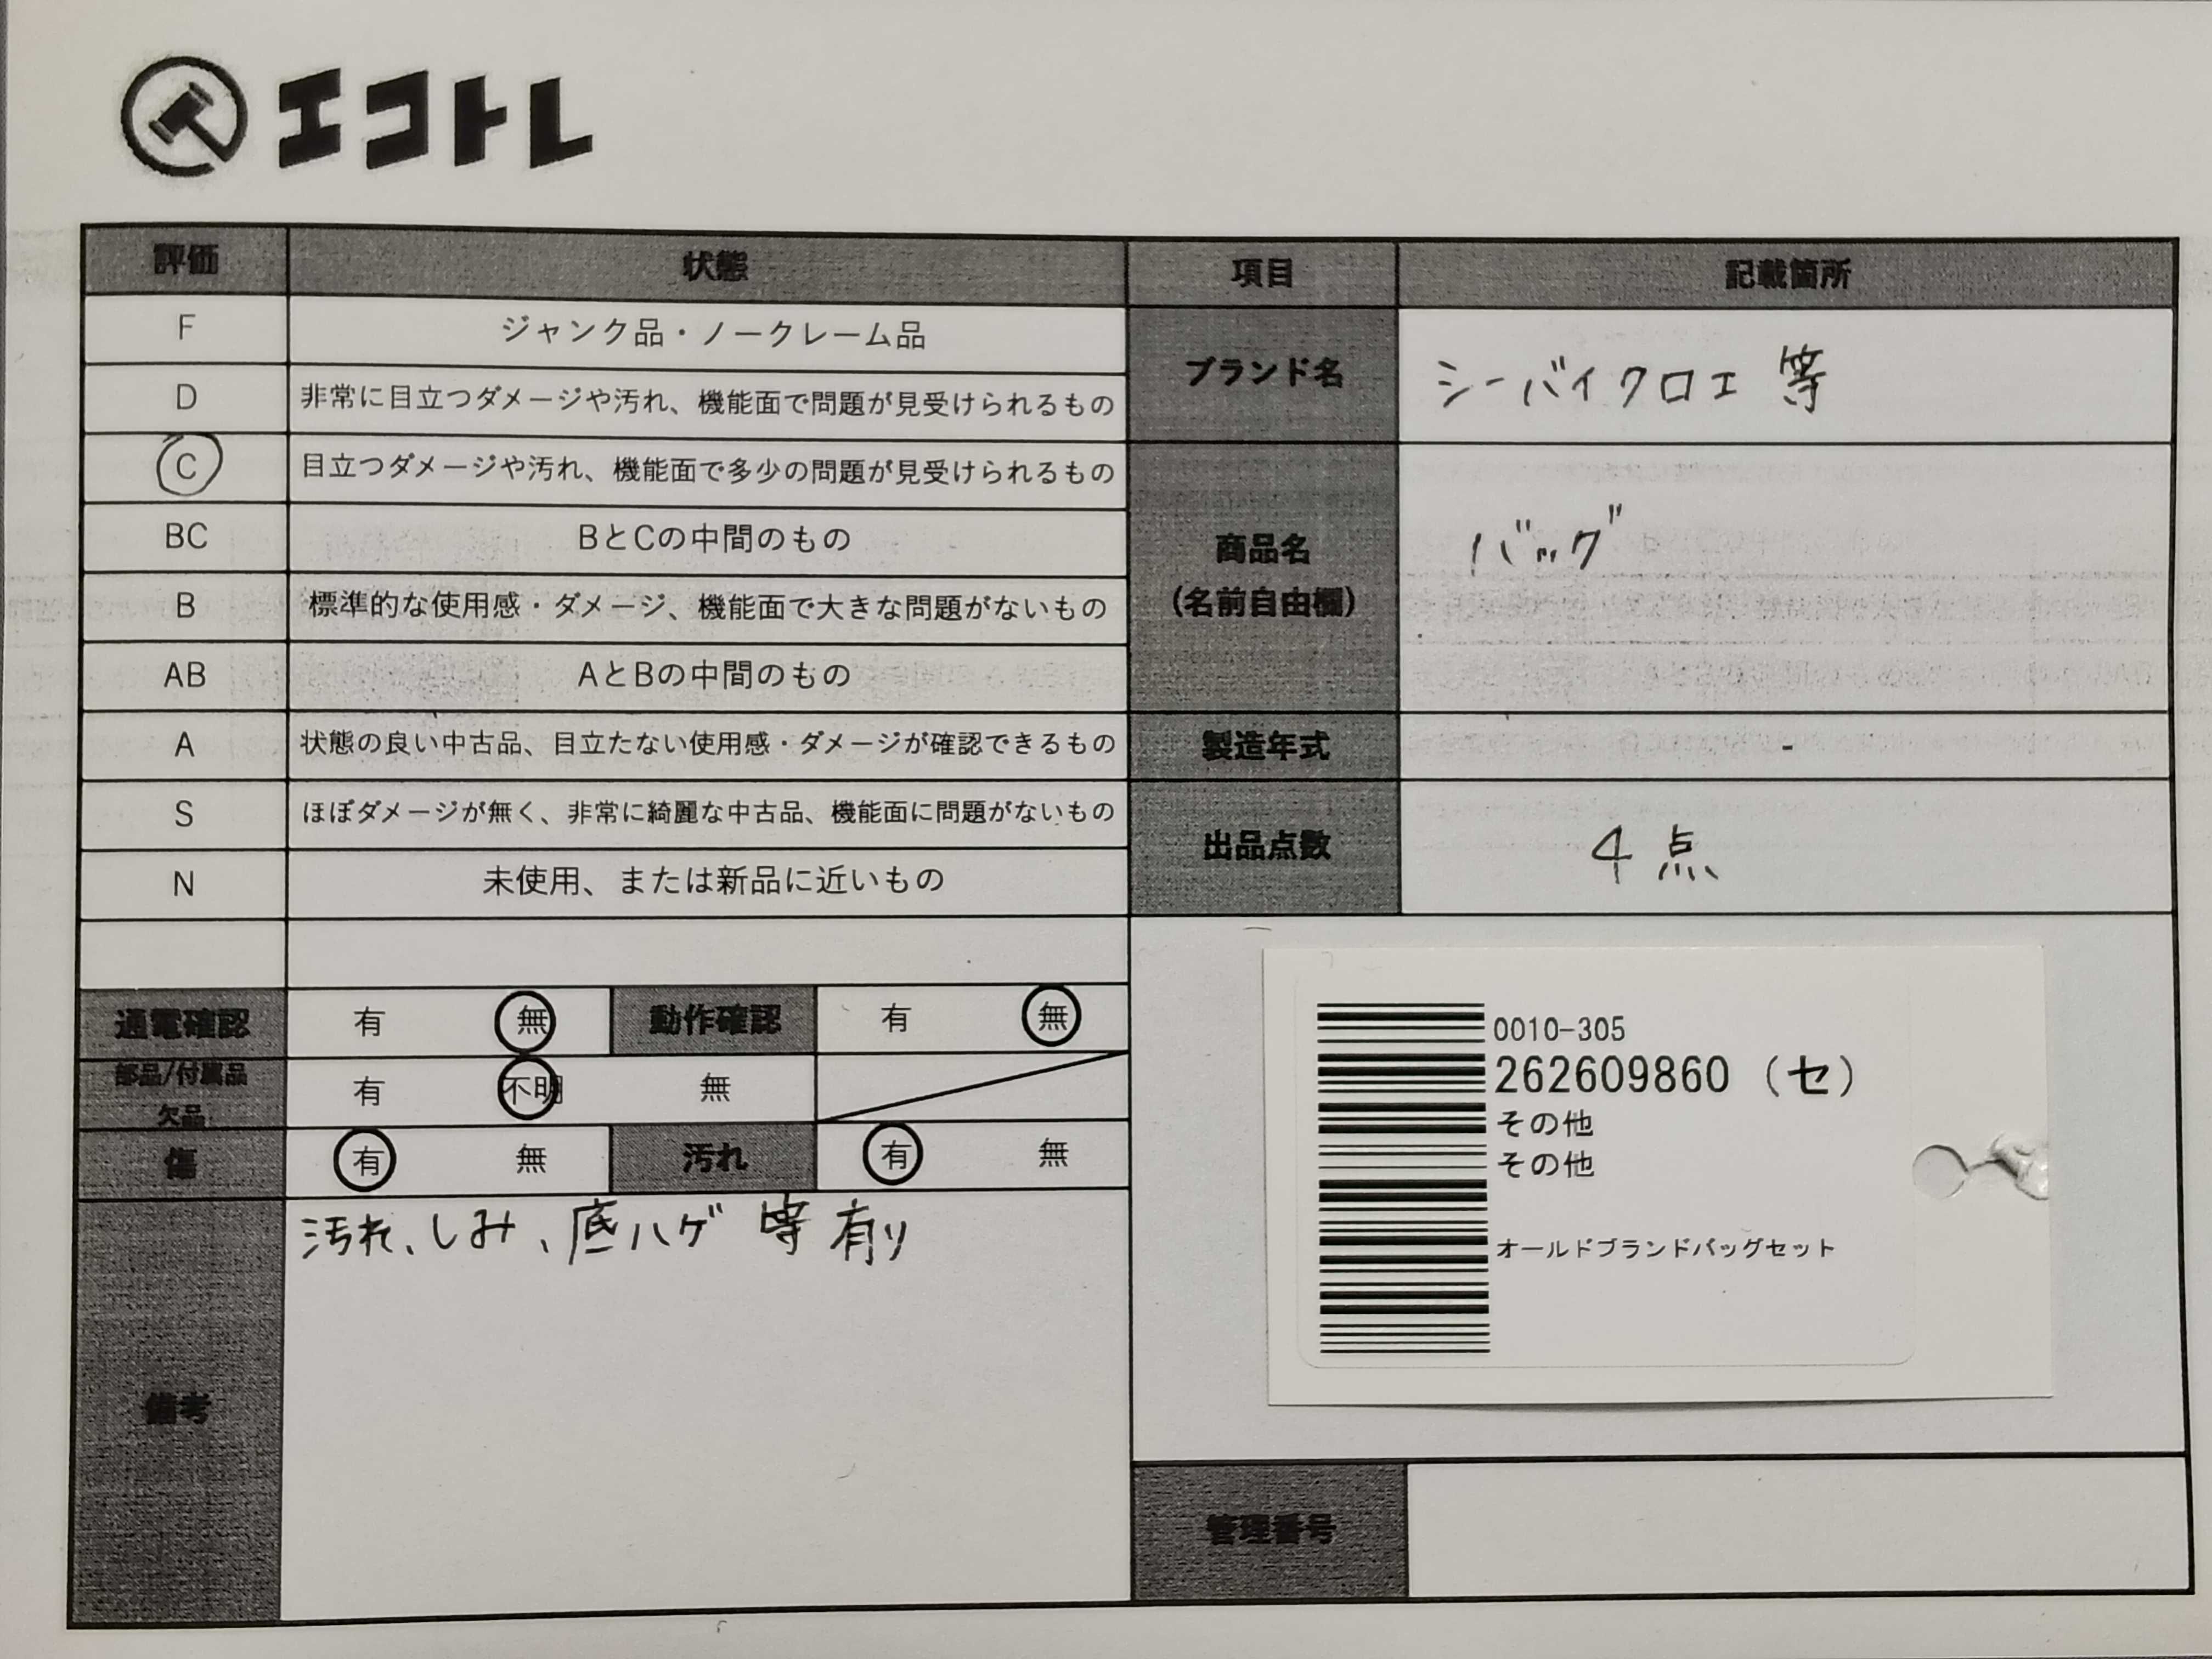 エコトレ
評価 状態 項目 記載箇所
F ジャンク品・ノークレーム品
D 非常に目立つダメージや汚れ、機能面で問題が見受けられるもの
C 目立つダメージや汚れ、機能面で多少の問題が見受けられるもの
BC BとCの中間のもの
B 標準的な使用感・ダメージ、機能面で大きな問題がないもの
AB AとBの中間のもの
A 状態の良い中古品、目立たない使用感・ダメージが確認できるもの
S ほぼダメージが無く、非常に綺麗な中古品、機能面に問題がないもの
N 未使用、または新品に近いもの
ブランド名 シーバイクロエ等
商品名
(名前自由欄)
バッグ
製造年式 -
出品点数 4点
通電確認 有 無 動作確認 有 無
部品/付属品
欠品
有 不明 無
傷 有 無 汚れ 有 無
備考
汚れ、しみ、底ハゲ等有り
0010-305
262609860 (セ)
その他
その他
オールドブランドバッグセット
管理番号